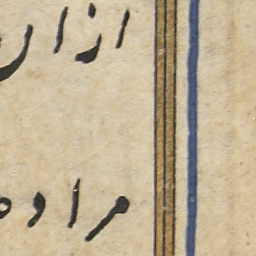 ازان
مراد